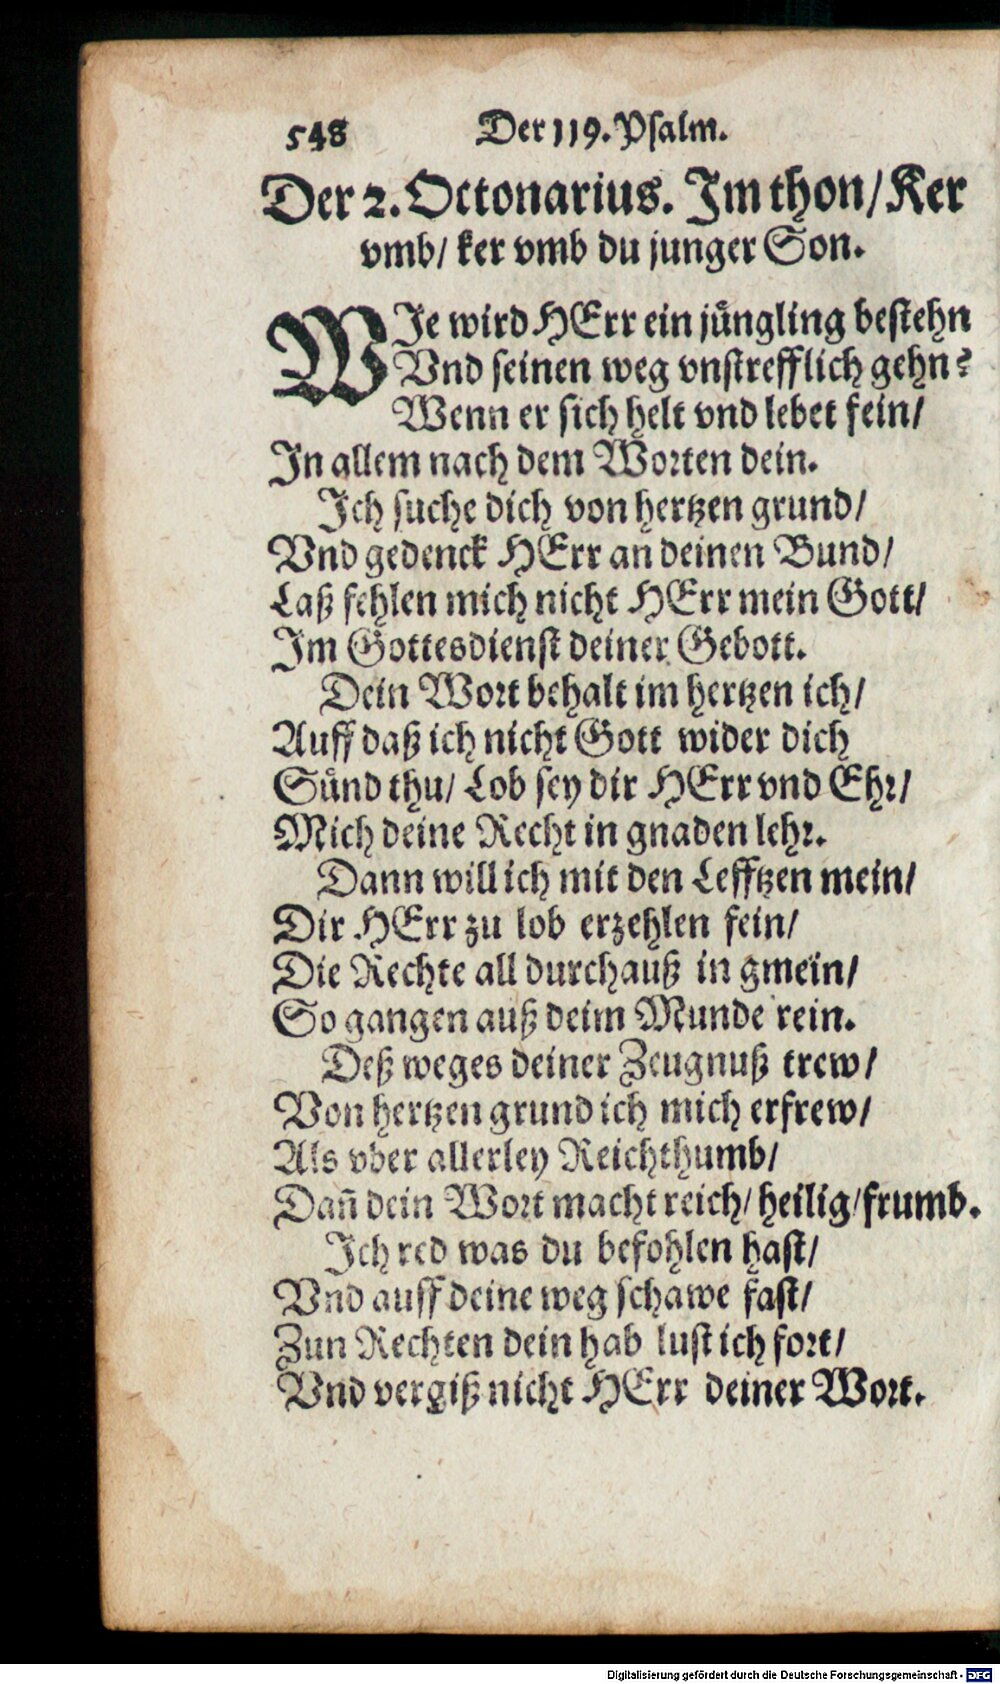 548 Der 119. Psalm.
Der 2. Octonarius. Im thon/ Ker
vmb/ ker vmb du junger Son.
WIe wird HErr ein jüngling bestehn
Vnd seinen weg vnstrefflich gehn?
Wenn er sich helt vnd lebet fein/
In allem nach dem Worten dein.
Ich suche dich von hertzen grund/
Vnd gedenck HErr an deinen Bund/
Laß fehlen mich nicht HErr mein Gott/
Im Gottesdienst deiner Gebott.
Dein Wort behalt im hertzen ich/
Auff daß ich nicht Gott wider dich
Sünd thu/ Lob sey dir HErr vnd Ehr/
Mich deine Recht in gnaden lehr.
Dann will ich mit den Lefftzen mein/
Dir HErr zu lob erzehlen fein/
Die Rechte all durchauß in gmein/
So gangen auß deim Munde rein.
Deß weges deiner Zeugnuß trew/
Von hertzen grund ich mich erfrew/
Als vber allerley Reichthumb/
Dañ dein Wort macht reich/ heilig/ frumb.
Ich red was du befohlen hast/
Vnd auff deine weg schawe fast/
Zun Rechten dein hab lust ich fort/
Vnd vergiß nicht HErr deiner Wort.
Digitalisierung gefördert durch die Deutsche Forschungsgemeinschaft - DFG